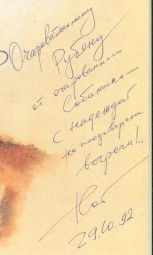 Очаровательному
Рубену
от очарованного
Собакина —
с надеждой
на
встречи!..
29.10.92